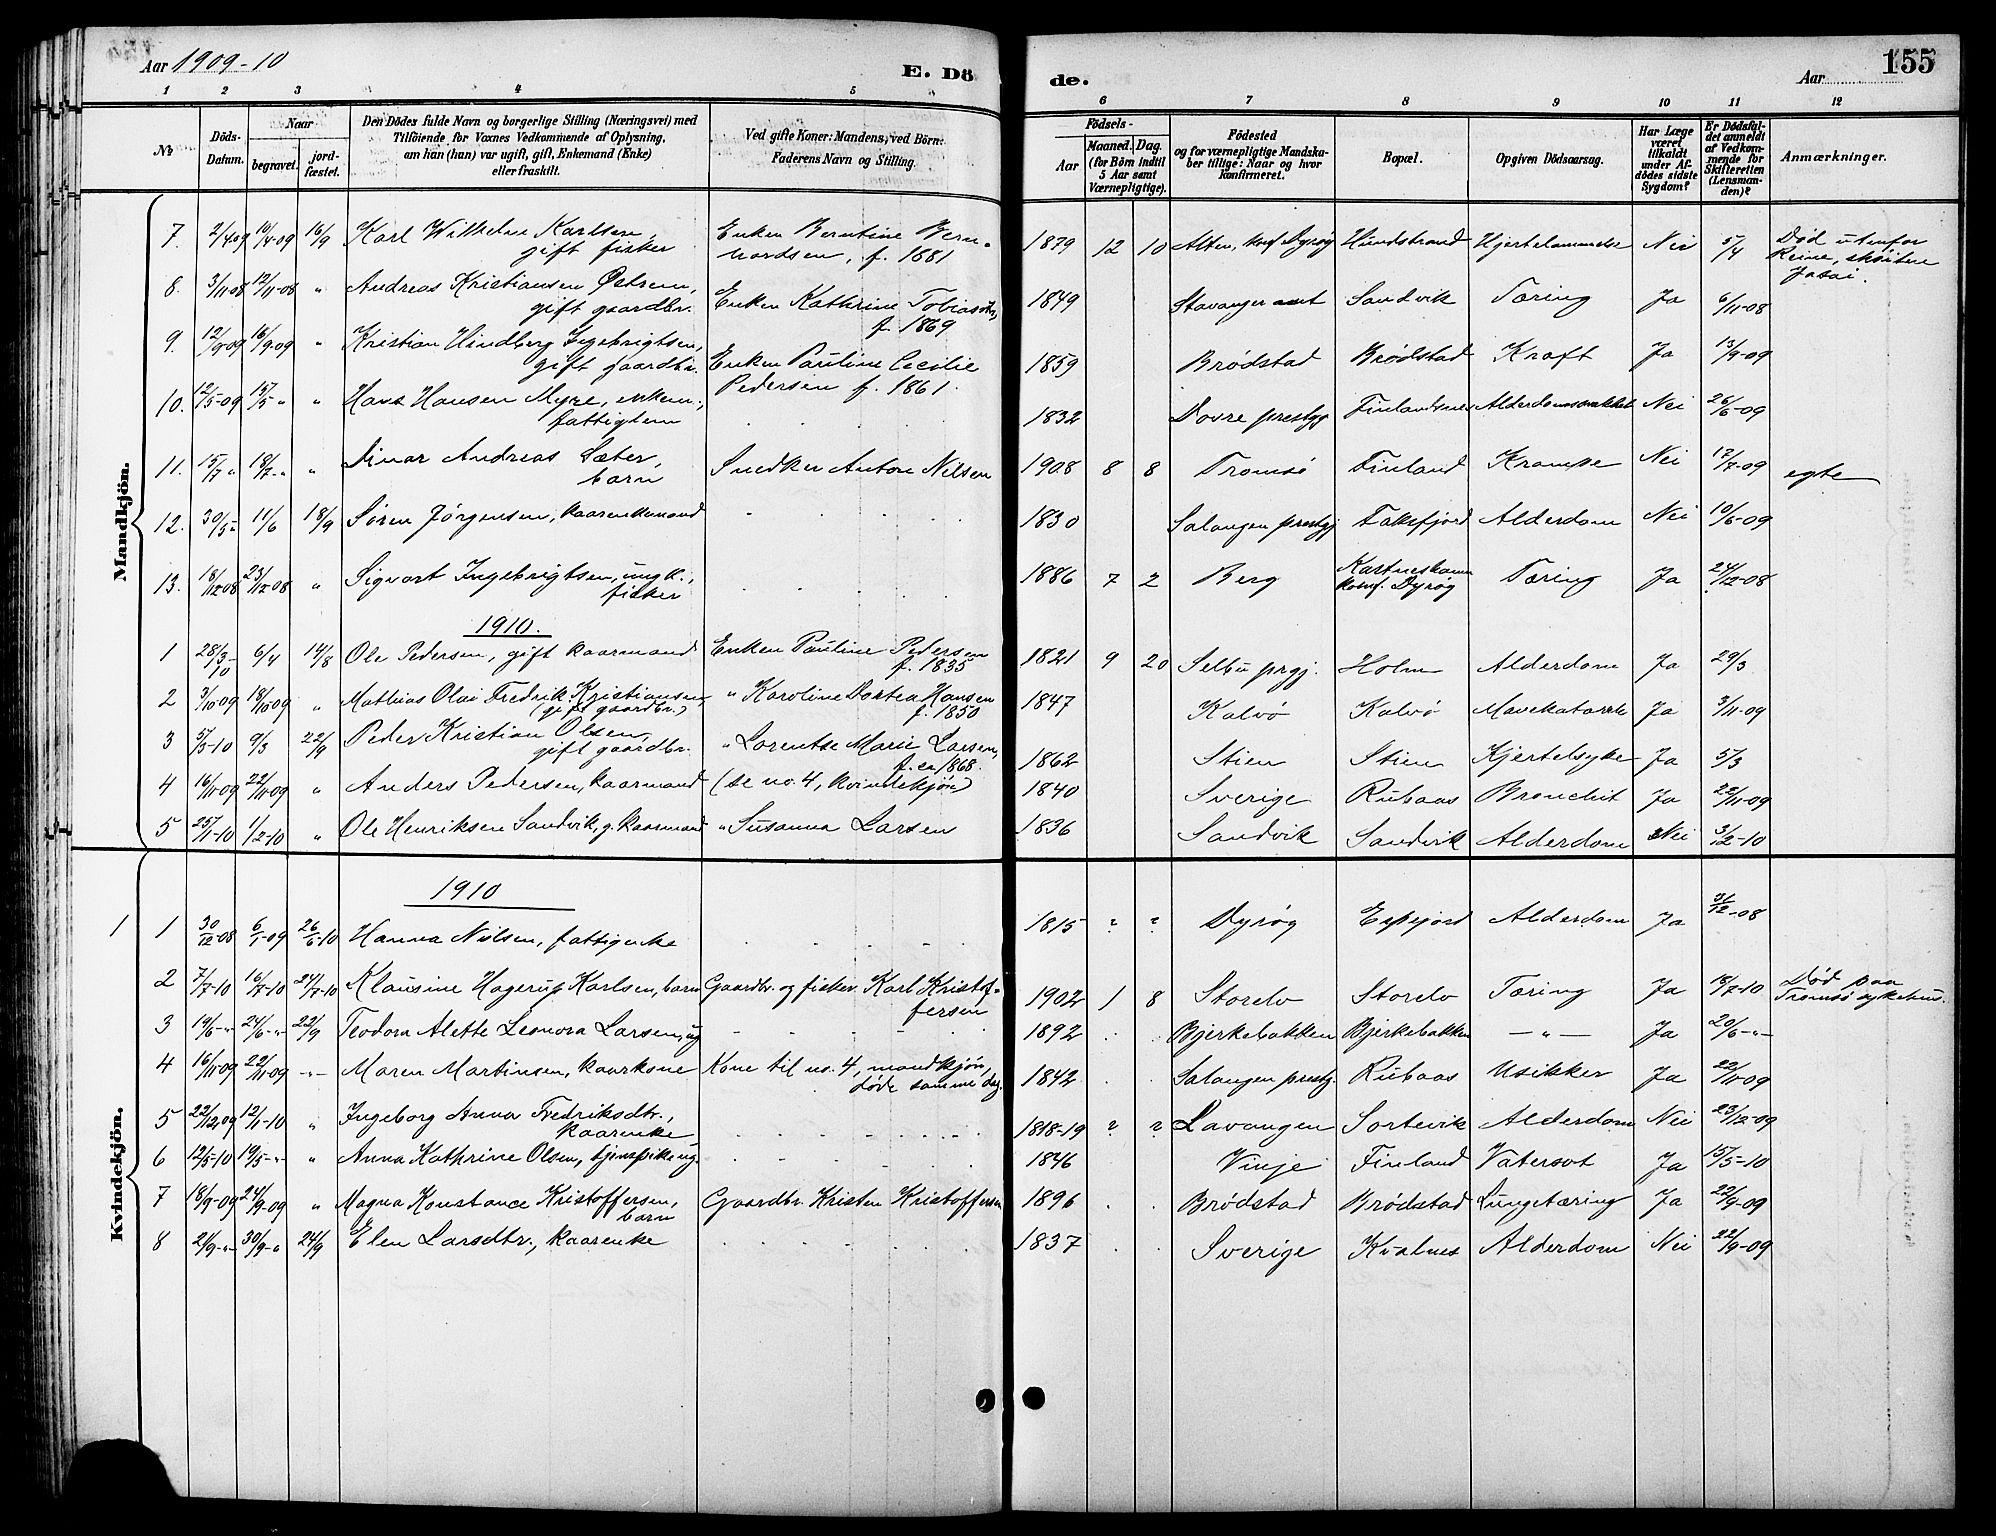 Aar 1909-10
E. Dö
de.
Aar
155
1 2 3 4 5 6 7 8 9 10 11 12
No
Döds-Datum.
Naar
begravet.
jord-fæstet.
Den Dödes fulde Navn og borgerlige Stilling (Næringsvei) med
Tilföiende for Voxnes Vedkommende af Oplysning,
om han (hun) var ugift, gift, Enkemand (Enke)
eller fraskilt.
Ved gifte Koner: Mandens, ved Börn:
Faderens Navn og Stilling.
Födsels-
Aar
Maaned. Dag.
(for Börn indtil
5 Aar samt
Værnepligtige).
Födested
og for værnepligtige Mandska-
ber tillige: Naar og hvor
Konfirmeret.
Bopæl.
Opgiven Dödsaarsag.
Har Læge
været
tilkaldt
under Af-
dödes sidste
Sygdom?
Er Dödsfal-
det anmeldt
af Vedkom-
mende for
Skifteretten
(Lensman-
den)?
Anmærkninger.
Mandkjön.
7. 2/4 09 10/4-09 16/9 Karl Wilhelm Karlsen, gift fisker Enken Berntine Bern-hardsen, f. 1881 1879 12 10 Alten, konf Dyrøy Hundstrand Hjertelammelse Nei 5/4 Død utenfor Reine, skøiten
8. 3/11-08 12/11-08 " Andreas Kristiansen Østrem, gift gaardbr. Enken Kathrine Tobiasdtr, f. 1869 1849 Stavanger amt Sandvik Tæring Ja 6/11-08
9. 12/9-09 16/9-09 " Kristian Hindberg Ingebrigtsen, gift gaardbr. Enken Pauline Cecilie Pedersen f. 1861. 1859 Brødstad Brødstad Kræft Ja 13/9-09
10. 12/5-09 15/5 " " Hans Hansen Myre, enkem., fattiglem 1832 Dovre prestgj Finlandsnes Alderdomssvakhet Nei 26/6-09
11. 15/7 " 18/7-" " Einar Andreas Sæter, barn Snedker Anton Nilsen 1908 8 8 Tromsø Finland Krampe Nei 17/7-09 egte
12. 30/5-" 11/6 18/9 Søren Jørgensen, kaarenkemand 1830 Salangen prestgj Faksfjord Alderdom Nei 10/6-09
13. 18/12-08 23/12-08 " Sigvart Ingebrigtsen, ungk., fisker 1886 7 2 Berg konf. Dyrøy Tæring Ja 24/12-08
1910.
1 28/3-10 6/4 14/8 Ole Pedersen, gift kaarmand Enken Pauline Pedersen f. 1835 1821 9 20 Selbu prgj. Holm Alderdom Ja 29/3
2 3/10-09 18/10-09 " Mathias Olai Fredrik Kristiansen, (gift gaardbr.) " Karoline Dortea Hansen f. 1850 1847 Kalvø Kalvø Mavekatarrh Ja 3/11-09
3 5/3-10 9/3 22/9 Peder Kristian Olsen, gift gaardbr. " Lorentse Marie Larsen, f. ca 1868. 1862 Stien Stien Kjertelsyke Ja 5/3
4 16/11-09 22/11-09 " Anders Pedersen, kaarmand (se no. 4, kvindekjøn) 1840 Sverige Rubaas Bronchit Ja 22/11-09
5 25/1-10 1/2-10 " Ole Henriksen Sandvik, g. kaarmand " Susanna Larsen 1836 Sandvik Sandvik Alderdom Nei 3/2-10
Kvindekjön.
1910
1 1 30/12-08 6/1-09 26/6-10 Hanna Nilsen, fattigenke 1815 ? ? Dyrøy Espejord Alderdom Ja 31/12-08
2 7/7-10 16/7-10 24/7-10 Klausine Hagerup Karlsen, barn Gaardbr. og fisker Karl Kristof-fersen 1902 1 8 Storelv Storelv Tæring Ja 18/7-10 Død paa Tromsø sykehus.
3 19/6-"- 24/6-"- 22/9 Teodora Alette Leonora Larsen, ug 1892 Bjerkebakken Bjerkebakken -"- Ja 20/6-"-
4 16/11-09 22/11-09 -"- Maren Martinsen, kaarkone Kone til no. 4, mandkjøn, døde samme dag. 1842 Salangen prestgj. Rubaas Usikker Ja 22/11-09
5 22/12-09 12/1-10 " Ingeborg Anna Fredriksdtr., kaarenke 1818-19 ? ? Lavangen Sortevik Alderdom Nei 23/12-09
6 12/5-10 19/5-"- " Anna Kathrine Olsen, tjenpike ug. 1846 Vinje Finland Vatersot Ja 15/5-10
7 18/9-09 24/9-09 " Magna Konstance Kristoffersen, barn Gaardbr. Kristen Kristoffersen 1896 Brødstad Brødstad Lungetæring Ja 22/9-09
8 21/9-"- 30/9-" 24/9 Elen Larsdtr., kaarenke 1837 Sverige Kvalnes Alderdom Nei 22/9-09